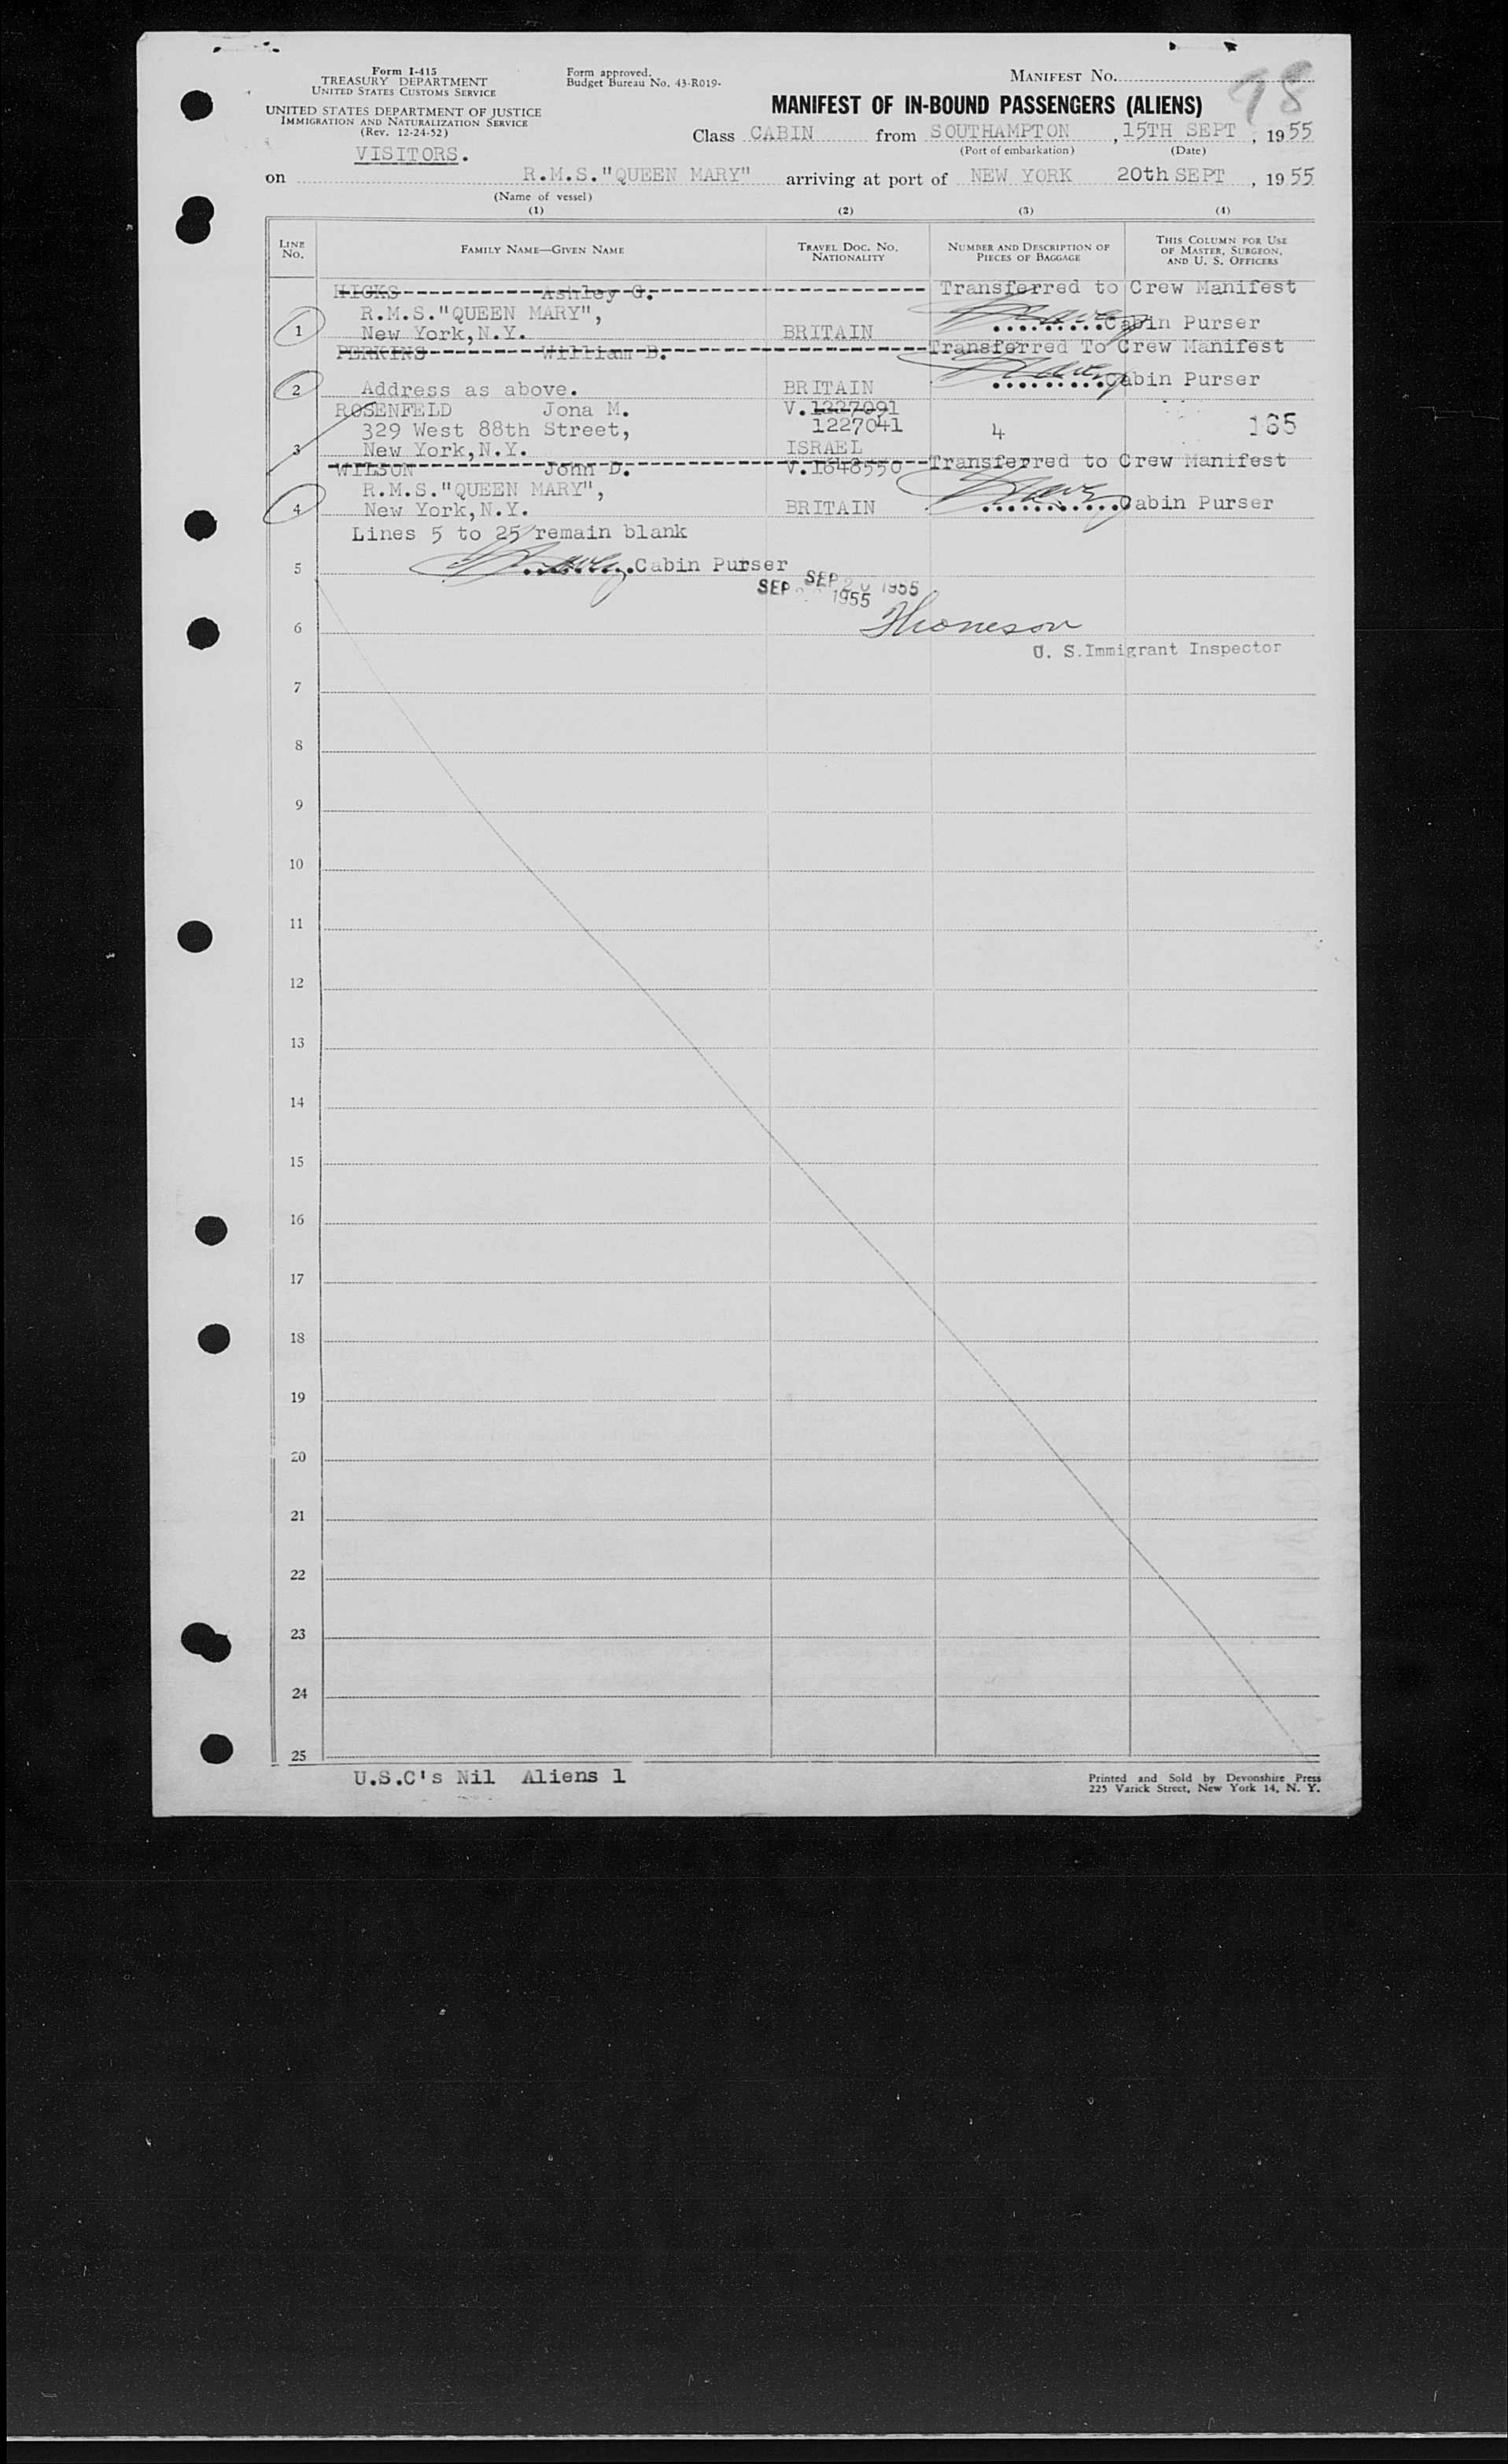 Form I-415
TREASURY DEPARTMENT
UNITED STATES CUSTOMS SERVICE
UNITED STATES DEPARTMENT OF JUSTICE
IMMIGRATION AND NATURALIZATION SERVICE
(Rev. 12-24-52)
Form approved.
Budget Bureau No. 43-R019-
MANIFEST NO. 98
MANIFEST OF IN-BOUND PASSENGERS (ALIENS)
Class CABIN from SOUTHAMPTON, 15TH SEPT, 1955
(Port of embarkation) (Date)
VISITORS.
on R.M.S."QUEEN MARY" arriving at port of NEW YORK 20th SEPT, 1955
(Name of vessel)
(1) (2) (3) (4)
LINE NO. FAMILY NAME—GIVEN NAME TRAVEL DOC. NO. NATIONALITY NUMBER AND DESCRIPTION OF PIECES OF BAGGAGE THIS COLUMN FOR USE OF MASTER, SURGEON, AND U. S. OFFICERS
HICKS Ashley G. Transferred to Crew Manifest
R.M.S."QUEEN MARY",
1 New York,N.Y. BRITAIN Cabin Purser
PERKINS William B. Transferred To Crew Manifest
2 Address as above. BRITAIN Cabin Purser
ROSENFELD Jona M. V.1227091
329 West 88th Street, 1227041 4 165
3 New York,N.Y. ISRAEL
WILSON John D. V.1648550 Transferred to Crew Manifest
R.M.S."QUEEN MARY",
4 New York,N.Y. BRITAIN Cabin Purser
Lines 5 to 25 remain blank
5 Cabin Purser
SEP 20 1955
SEP 1955
6 Thoneson
U. S.Immigrant Inspector
7
8
9
10
11
12
13
14
15
16
17
18
19
20
21
22
23
24
25
U.S.C's Nil Aliens 1
Printed and Sold by Devonshire Press
225 Varick Street, New York 14, N. Y.